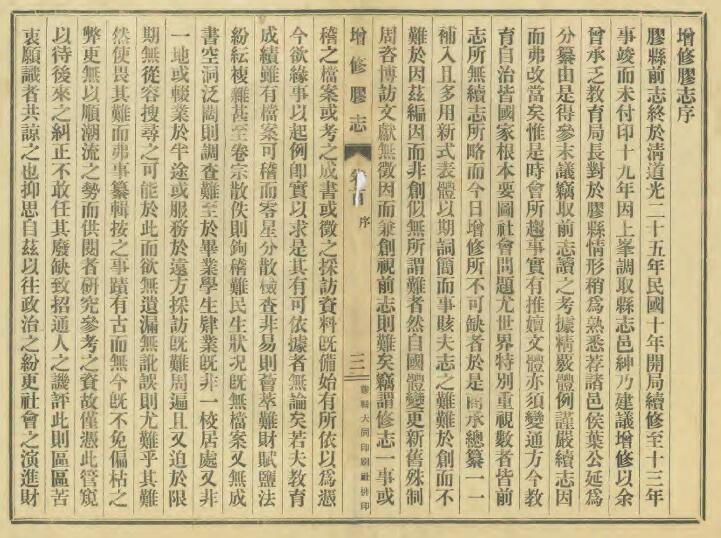 增修膠志序
膠縣前志終於清道光二十五年民國十年開局續修至十三年
事竣而未付印十九年因上峯調取縣志邑紳乃建議增修以余
曾承乏教育局長對於膠縣情形稍為熟悉荐諸邑侯葉公延為
分纂由是得參末議竊取前志讀之考據精覈體例謹嚴續志因
而弗改當矣惟是時會所趨事實有推嬗文體亦須變通方今教
育自治皆國家根本要圖社會問題尤世界特別重視數者皆前
志所無續志所略而今日增修所不可缺者於是商承總纂一一
補入且多用新式表體以期詞簡而事賅夫志之難難於創而不
難於因茲編因而非創似無所謂難者然自國體變更新舊殊制
周咨博訪文獻無徵因而兼創視前志則難矣竊謂修志一事或
增修膠志
序
三
膠縣大同印刷社排印
稽之檔案或考之成書或徵之採訪資料既備始有所依以為憑
今欲緣事以起例即實以求是其有可依據者無論矣若夫教育
成績雖有檔案可稽而零星分散檢查非易則薈萃難財賦鹽法
紛紜複雜甚至卷宗散佚則鉤稽難民生狀況既無檔案又無成
書空洞泛闊則調查難至於畢業學生肄業既非一校居處又非
一地或輟業於半途或服務於遠方採訪既難周遍且又迫於限
期無從容搜尋之可能於此而欲無遺漏無訛誤則尤難乎其難
然使畏其難而弗事纂輯按之事蹟有古而無今既不免偏枯之
弊更無以順潮流之勢而供閱者研究參考之資故僅憑此管窺
以待後來之糾正不敢任其廢缺致招通人之譏評此則區區苦
衷願識者共諒之也抑思自茲以往政治之紛更社會之演進財